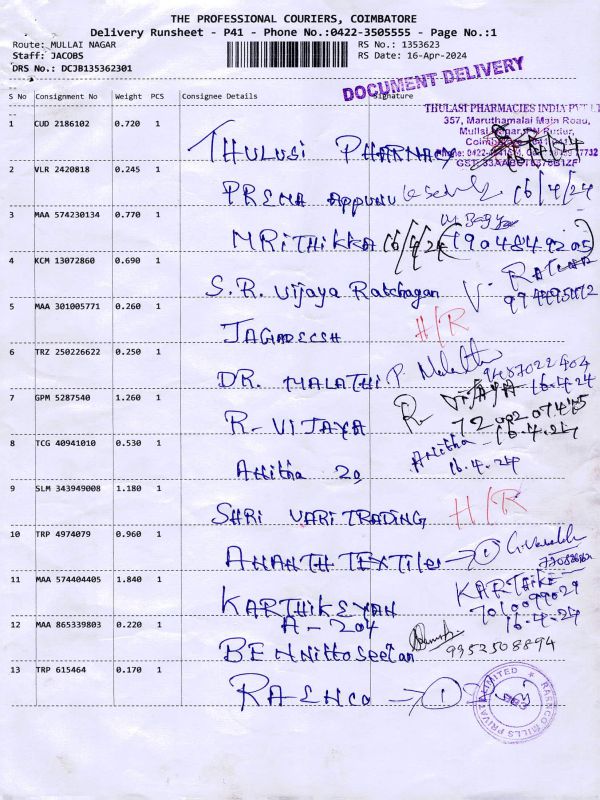 THE PROFESSIONAL COURIERS, COIMBATORE
Delivery Runsheet - P41 - Phone No.:0422-3505555 - Page No.:1
Route: MULLAI NAGAR RS No.: 1353623
Staff: JACOBS RS Date: 16-Apr-2024
DRS No.: DCJB135362301
DOCUMENT DELIVERY
S No Consignment No Weight PCS Consignee Details Signature
THULASI PHARMACIES INDIA PVT LT
357, Maruthamalai Main Road,
1 CUD 2186102 0.720 1 THULUSI PHARMACY
2 VLR 2420818 0.245 1 PREMA APPUNU 16/4/24
3 MAA 574230134 0.770 1 MRITHIKKA 16/4/24
4 KCM 13072860 0.690 1 S.R. Vijaya Ratchagan V.
5 MAA 301005771 0.260 1 JAGADEESH H/R
6 TRZ 250226622 0.250 1 DR. MALATHI P. 9487022404
16.4.24
7 GPM 5287540 1.260 1 R-VIJAYA R. VIJAYA
16.4.24
8 TCG 40941010 0.530 1 Anitha 20 Anitha
16.4.24
9 SLM 343949008 1.180 1 SHRI VARI TRADING H/R
10 TRP 4974079 0.960 1 ANANTH TEXTILES → 1
11 MAA 574404405 1.840 1 KARTHIKEYAN KARTHIKE
A-204 7010099029
16.4.24
12 MAA 865339803 0.220 1 BENNITTO SEELAN 9952508894
13 TRP 615464 0.170 1 RAENCO → 1
RAENCO MILLS PRIVATE LIMITED